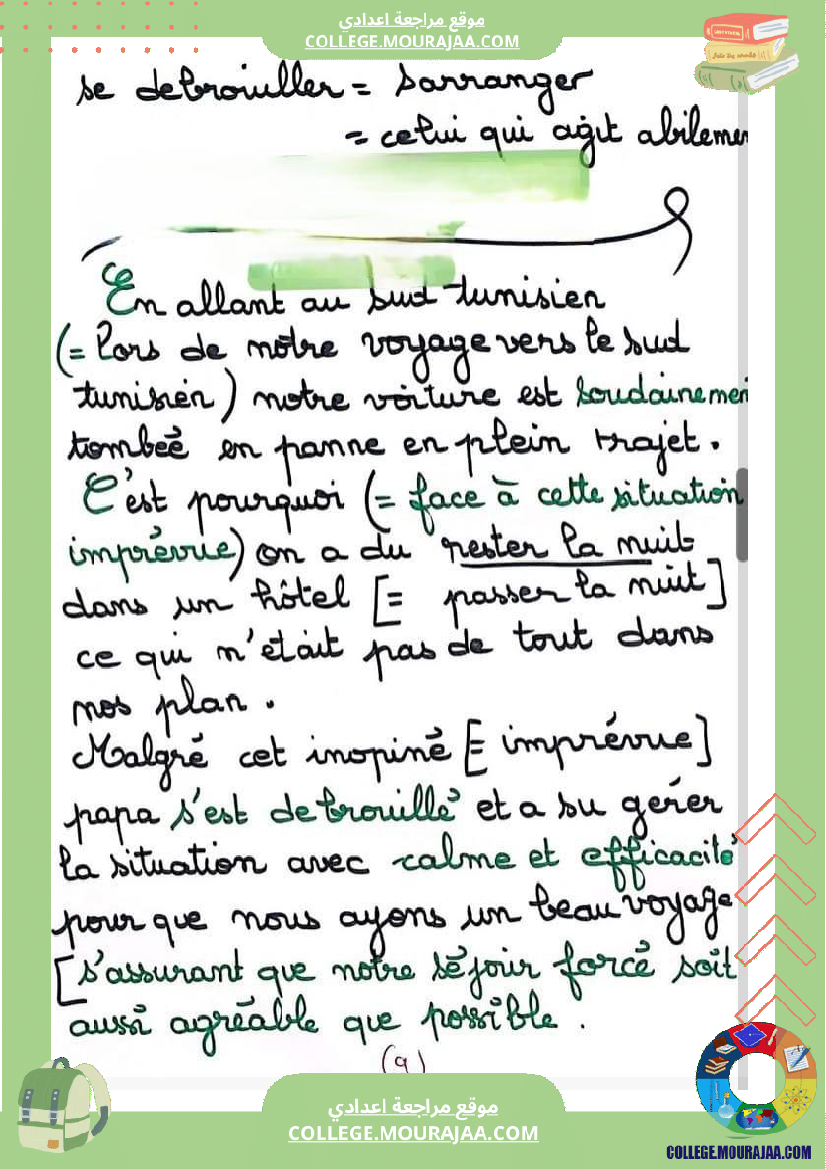 موقع مراجعة اعدادي
COLLEGE.MOURAJAA.COM
se debrouiller = Sarranger
= celui qui agit abilemen
En allant au sud tunisien
(= Lors de notre voyage vers le sud
tunisien) notre voiture est soudainemen
tombeé en panne en plein trajet.
C'est pourquoi (= face à cette situation
imprévue) on a du rester la nuit
dans un hôtel [= passer la nuit]
ce qui n'était pas de tout dans
nos plan.
Malgré cet inopiné [= imprévue]
papa s'est debrouillé et a su gérer
la situation avec calme et efficacité
pour que nous ayons un beau voyage
[s'assurant que notre séjour forcé soit
aussi agréable que possible.
(9)
موقع مراجعة اعدادي
COLLEGE.MOURAJAA.COM
COLLEGE.MOURAJAA.COM